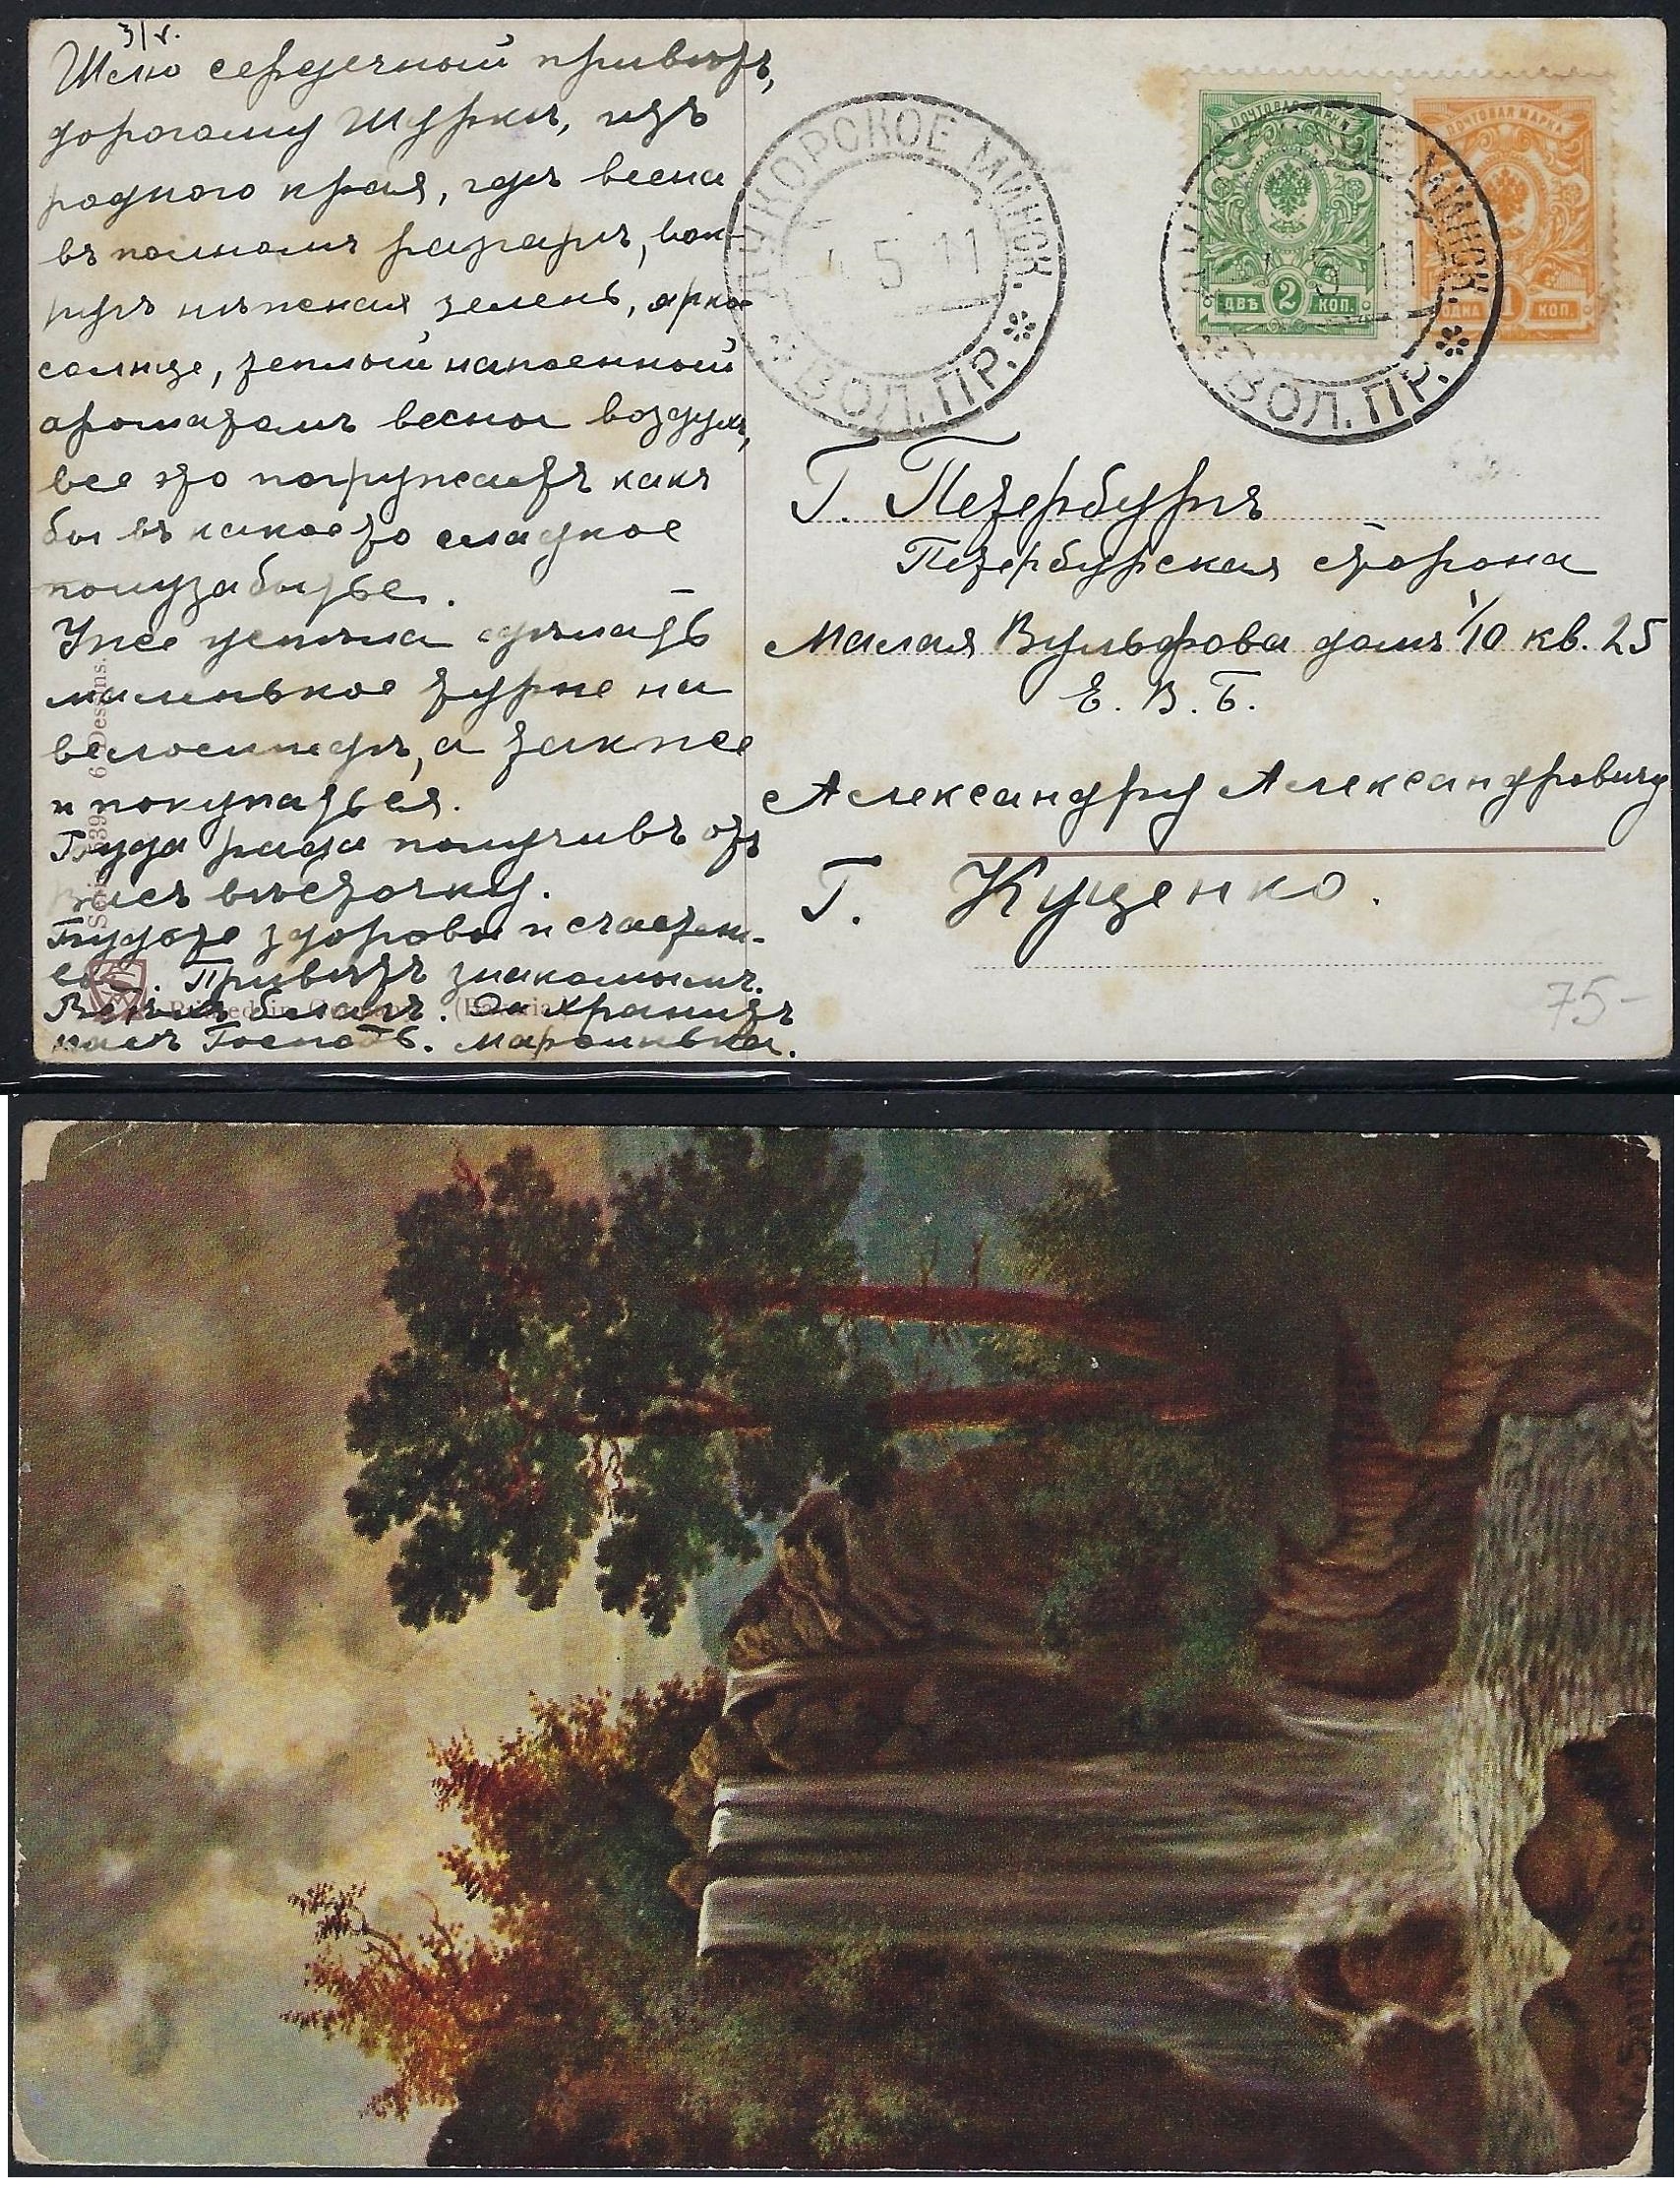 3/V.
Шлю сердечный привѣтъ,
дорогому Шурѣ, изъ
родного края, гдѣ весна
въ полномъ разгарѣ, вок-
ругъ нѣжная зелень, яркое
солнце, теплый напоенный
ароматомъ весны воздухъ,
все это погружаетъ какъ
бы въ какое то сладкое
полузабытье.
Уже успѣла сдѣлать
маленькое турнэ на
велосипедѣ, а также
и покупаться.
Буду рада получивъ отъ
Васъ вѣсточку.
Будьте здоровы и счастли-
вы. Привѣтъ знакомымъ.
Да хранитъ
Господь.
Serie 639 6 Dessins.
Printed in Germany (Bavaria)
ПУКОРСКОЕ МИНСК. ВОЛ. ПР.
4 5 11
ПОЧТОВАЯ МАРКА
ДВѢ 2 КОП.
ПОЧТОВАЯ МАРКА
ОДНА 1 КОП.
МИНСК. ВОЛ. ПР.
Г. Петербургъ
Петербургская сторона
Малая Вульфова домъ 1/10 кв. 25
Е. В. Б.
Александру Александровичу
Г. Куценко.
75-